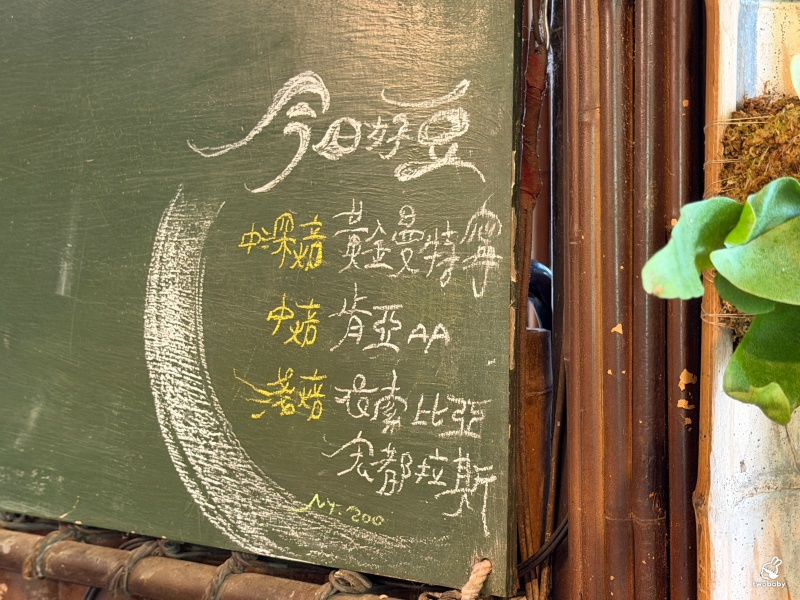 今日好豆
中深焙 黃金曼特寧
中焙 肯亞AA
淺焙 衣索比亞
宏都拉斯
NT.200
twobaby